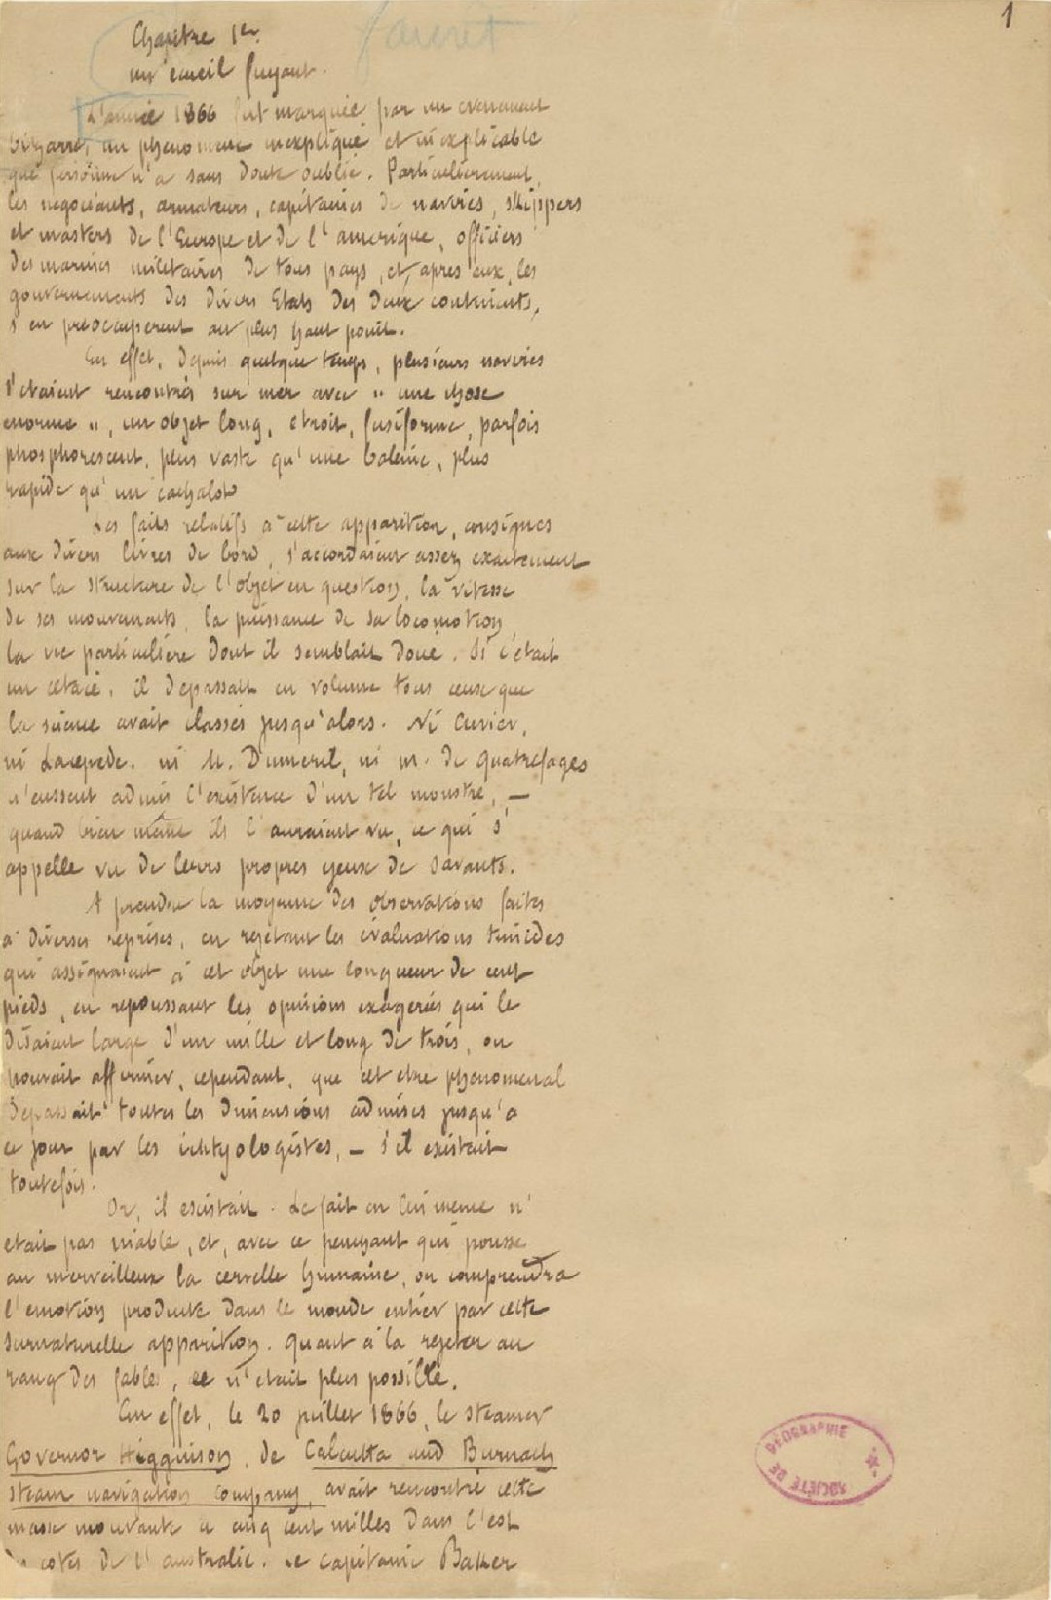 1
Favret
Chapitre 1er.
un ecueil fuyant.
L'année 1866 fut marquée par un evenement
bizarre, un phenomene inexpliqué et inexplicable
que personne n'a sans doute oublié. Particulierement,
les negociants, armateurs, capitaines de navires, skippers
et masters de l'Europe et de l'amerique, officiers
des marines militaires de tous pays, et, apres eux, les
gouvernements des divers Etats des deux continents,
s'en preoccuperent au plus haut point.
En effet, depuis quelque temps, plusieurs navires
s'etaient rencontrés sur mer avec " une chose
enorme ", un objet long, etroit, fusiforme, parfois
phosphorescent, plus vaste qu'une baleine, plus
rapide qu'un cachalot
Les faits relatifs a cette apparition, consignes
aux divers livres de bord, s'accordaient assez exactement
sur la structure de l'objet en question, la vitesse
de ses mouvements, la puissance de sa locomotion
la vie particulière dont il semblait doué. Si c'etait
un cetacé, il depassait en volume tous ceux que
la science avait classés jusqu'alors. Ni Cuvier,
ni Lacepede, ni M. Dumeril, ni m. de Quatrefages
n'eussent admis l'existence d'un tel monstre, —
quand bien même ils l'auraient vu, ce qui s'
appelle vu de leurs propres yeux de savants.
A prendre la moyenne des observations faites
a diverses reprises, en rejetant les évaluations timides
qui assignaient à cet objet une longueur de cent
pieds, en repoussant les opinions exagerées qui le
disaient large d'un mille et long de trois, on
pouvait affirmer, cependant, que cet etre phenomenal
depassait toutes les dimensions admises jusqu'a
ce jour par les ichtyologistes, — s'il existait
toutefois.
Or, il existait. Le fait en lui meme n'
etait pas niable, et, avec ce penchant qui pousse
au merveilleux la cervelle humaine, on comprendra
l'emotion produite dans le monde entier par cette
surnaturelle apparition. Quant à la rejeter au
rang des fables, ce n'etait plus possible.
En effet, le 20 juillet 1866, le steamer
Governor Higginson, de Calcutta and Burnach
steam navigation Company, avait rencontré cette
masse mouvante a cinq cent milles dans l'est
cotes de l'australie. Le capitaine Baker
SOCIÉTÉ DE GÉOGRAPHIE